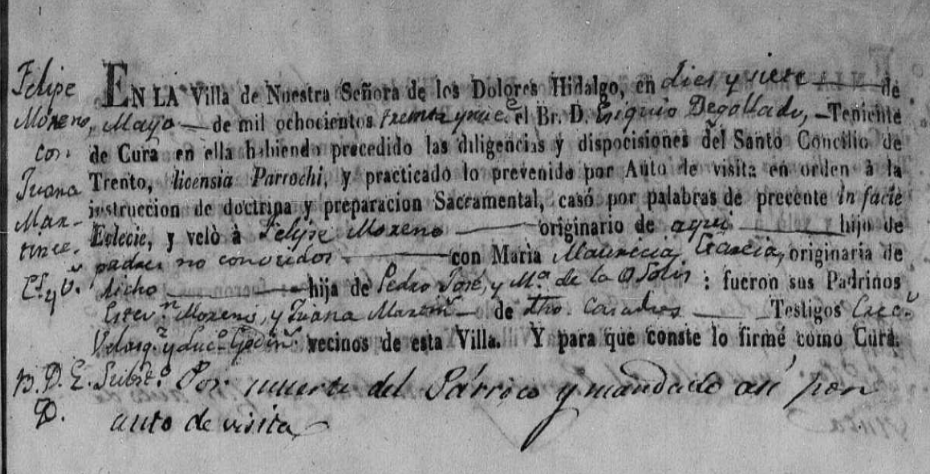 Felipe
Moreno,
con
Juana
Mar-
tinez
EN LA Villa de Nuestra Señora de los Dolores Hidalgo, en dies y siete de
Mayo de mil ochocientos treinta y nuee el Br. D. Esiquio Degollado, Teniente
de Cura en ella habiendo precedido las diligencias y disposiciones del Santo Concilio de
Trento, licensia Parrochi, y practicado lo prevenido por Auto de visita en orden à la
instruccion de doctrina y preparacion Sacramental, casó por palabras de precente in facie
Eclecie, y velò à Felipe Moreno originario de aqui hijo de
padres no conosidos con Maria Mauricia Garcia, originaria de
dicho hija de Pedro José, y Mª. de la O : fueron sus Padrinos
Moreno, y Juana de dho. Casados Testigos
vecinos de esta Villa. Y para que conste lo firmé como Cura.
Por muerte del Párroco y mandado asi por
auto de visita